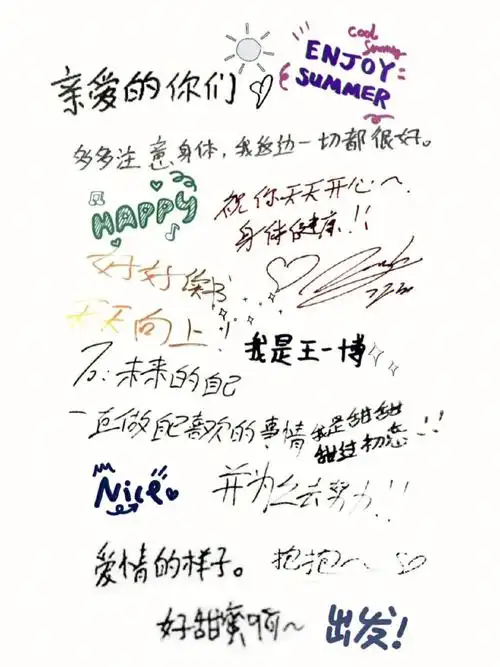 Cool
Summer
ENJOY
SUMMER
亲爱的你们
多多注意身体，我这边一切都很好。
HAPPY
祝你天天开心～
身体健康！！
好好读书
天天向上！
我是王一博
To：未来的自己
一直做自己喜欢的事情
我是甜甜甜
甜过初恋
Nice
并为之去努力！！
爱情的样子。
抱抱～
好甜蜜啊～
出发！